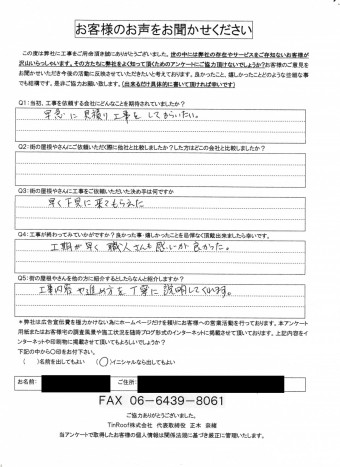 お客様のお声をお聞かせください
この度は弊社に工事をご用命頂き誠にありがとうございました。世の中には弊社の存在やサービスをご存知ないお客様が
沢山いらっしゃいます。その方たちに弊社をよく知って頂くためのアンケートにご協力頂けないでしょうか？お客様のご意見を
お聞かせいただき今後の活動に反映させていただきたいと考えております。良かったこと、嬉しかったことどのような些細な事
でも結構です。是非ご協力お願い致します。（出来るだけ具体的に書いて頂ければ幸いです）
Q1：当初、工事を依頼する会社にどんなことを期待されていましたか？
早急に見積り工事をしてもらいたい。
Q2：街の屋根やさんにご依頼いただく際に他社と比較しましたか？した方はどこの会社と比較しましたか？
Q3：街の屋根やさんに工事をご依頼いただいた決め手は何ですか
早く下見に来てもらえた
Q4：工事が終わってみていかがですか？良かった事・嬉しかったことを忌憚なく頂戴出来ましたら幸いです。
工期が早く職人さんも感じが良かった。
Q5：街の屋根やさんを他の方に紹介するとしたらなんと紹介しますか？
工事内容や進め方を丁寧に説明してくれます。
＊弊社は広告宣伝費を極力かけない為にホームページだけを頼りにお客様への営業活動を行っております。本アンケート
用紙またはお客様宅の調査風景や施工状況を随時ブログ形式のインターネットに掲載させて頂いております。上記内容をイ
ンターネットや印刷物に掲載させて頂いてもよろしいでしょうか？
下記の中から〇印をお付下さい。
（　）名前を出してもよい　（〇）イニシャルなら出してもよい
お名前：　ご住所：
FAX 06-6439-8061
ご協力ありがとうございました。
TinRoof株式会社 代表取締役 正木
当アンケートで取得したお客様の個人情報は関係法規に基づき厳正に管理いたします。